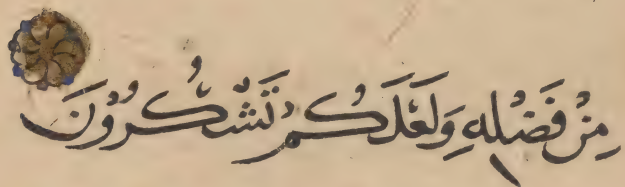 مِنْ فَضْلِهِ وَلَعَلَّكُمْ تَشْكُرُوْنَ